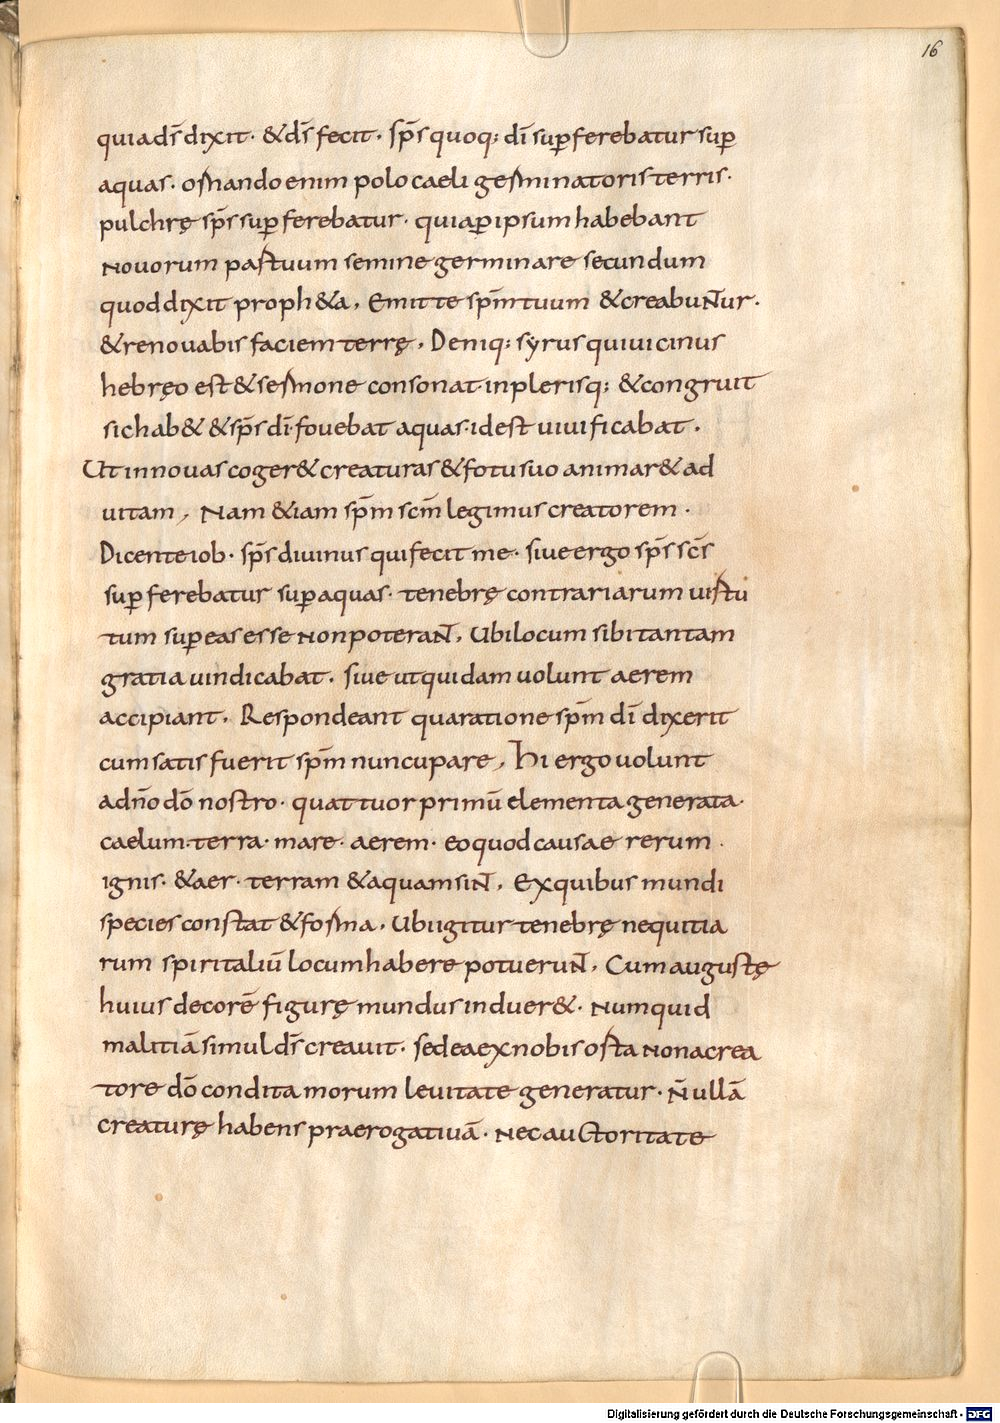 16
quia ds̄ dixit· & ds̄ fecit· sp̄s quoq; dī sup̱ferebatur sup̱
aquas· ornando enim polo caeli germinatoris terris·
pulchrę sp̄s sup̱ferebatur· quia p̱ ipsum habebant
nouorum partuum semine germinare secundum
quod dixit proph&a, Emitte sp̄m tuum & creabuNTur·
& renouabis faciem terrę, Deniq; syrus qui uicinus
hebręo est & sermone consonat in plerisq; & congruit
sic hab& & sp̄s dī· fouebat aquas· id est uiuificabat·
Ut in nouas coger& creaturas & fotu suo animar& ad
uitam, Nam & iam sp̄m scm̄ legimus creatorem·
Dicente iob· sp̄s diuinus qui fecit me· siue ergo sp̄s scs̄
sup̱ferebatur sup̱ aquas· tenebrę contrariarum uirtu
tum sup̱ eas esse non poteraNT, Ubi locum sibi tantam
gratia uindicabat· siue ut quidam uolunt aerem
accipiant, Respondeant qua ratione sp̄m dī dixerit
cum satis fuerit sp̄m nuncupare, Hi ergo uolunt
a dn̄o dō nostro· quattuor primū elementa generata·
caelum· terra· mare· aerem· eo quod causae rerum·
ignis· & aer· terram & aquam siNT, Ex quibus mundi
species constat & forma, Ubi igitur tenebrę nequitia
rum spiritaliū locum habere potueruNT, Cum augustę
huius decorē figurę mundus induer&· numquid
malitiā simul ds̄ creauit· sed ea ex nobis orta non a crea
tore dō condita morum leuitate generatur· n̄ ullā
creaturę habens praerogatiuā· nec auctoritate
Digitalisierung gefördert durch die Deutsche Forschungsgemeinschaft - DFG